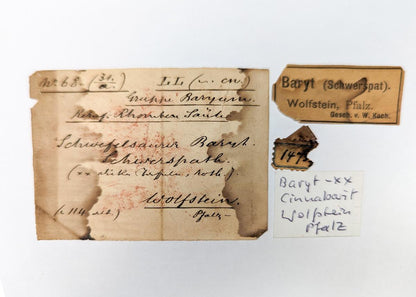 No. 68. (31/a.) LL (
Gruppe Baryum.
Rhomben Säule
Schwefelsaurer Baryt.
Schwerspath.
(xx dicke Tafeln, roth.)
Wolfstein.
Pfalz –
Baryt (Schwerspat).
Wolfstein, Pfalz.
Gesch. v. W. Koch.
Baryt -xx
Cinnabarit
Wolfstein
Pfalz